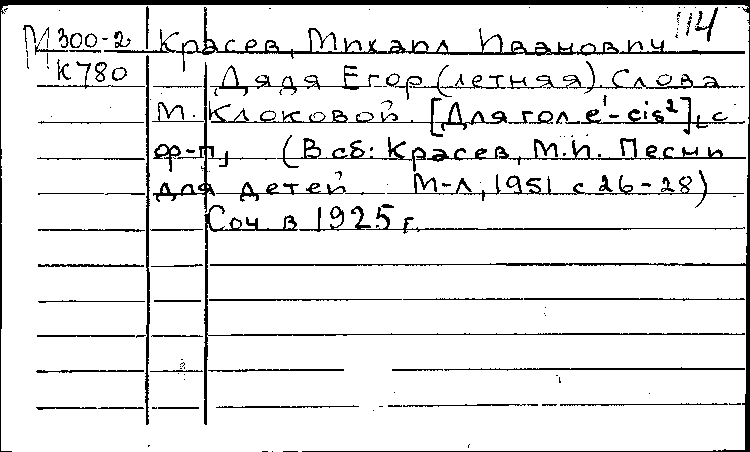 114
М300-2 Красев, Михаил Иванович
К780 Дядя Егор (летняя) Слова
М. Клоковой. [Для гол e¹-cis²], с
ф-п, (В сб: Красев, М.И. Песни
для детей. М-Л, 1951 с 26-28)
Соч. в 1925 г.